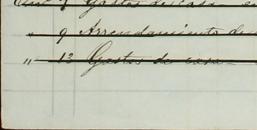 Gastos de casa
" 9 Arrendamiento de
" 13 Gastos de casa